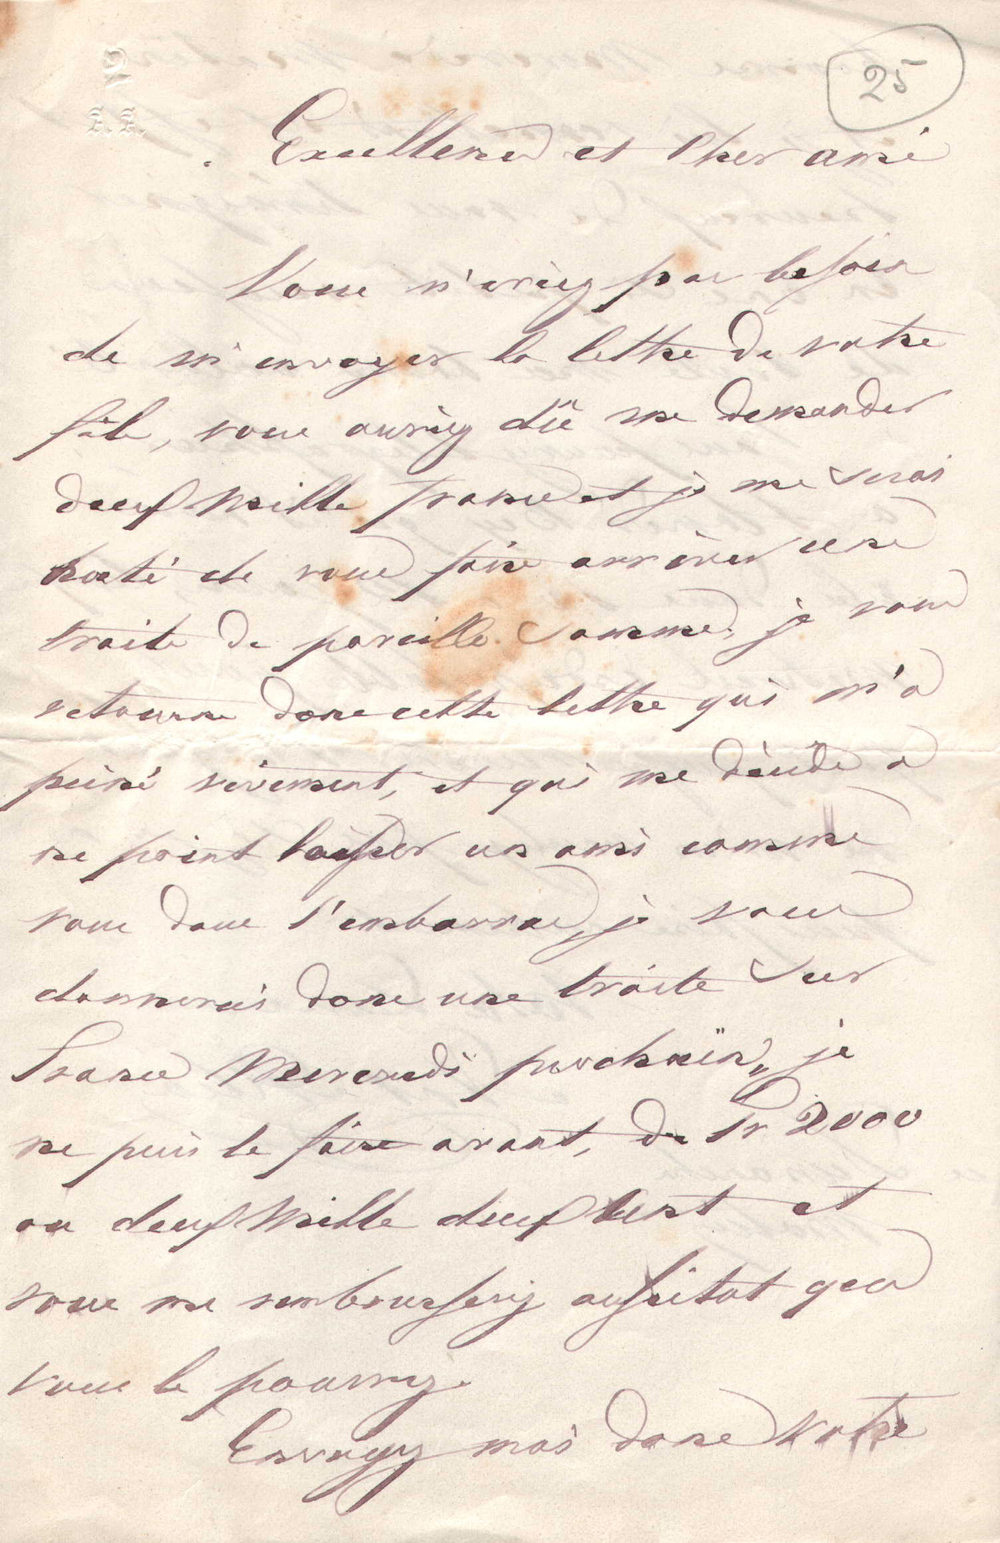 25
A. A.
Excellence et cher ami
Vous n'aviez pas besoin
de m'envoyer la lettre de votre
fils, vous auriez dû me demander
deux mille francs et je me serais
hâté de vous faire arriver une
traite de pareille somme, je vous
retourne donc cette lettre qui m'a
peiné vivement, et qui me décide a
ne point laisser un ami comme
vous dans l'embarras, je vous
donnerais donc une traite sur
France Mercredi prochaïn, je
ne puis le faire avant, de Fr 2000
ou deux mille deux cent et
vous me rembourserez aussitot que
vous le pourrez.
Envoyez moi donc votre